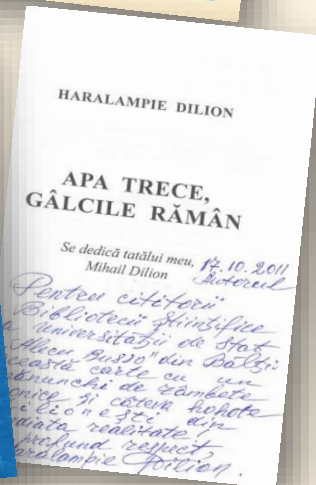 HARALAMPIE DILION
APA TRECE,
GÂLCILE RĂMÂN
Se dedică tatălui meu,
Mihail Dilion
17.10.2011
Autorul
Pentru cititorii
Bibliotecii Științifice
a Universității de Stat
"Alecu Russo" din Bălți
această carte cu un
mănunchi de zâmbete
și câteva hohote
dilionești din
realitate.
profund respect,
Haralampie Dilion.